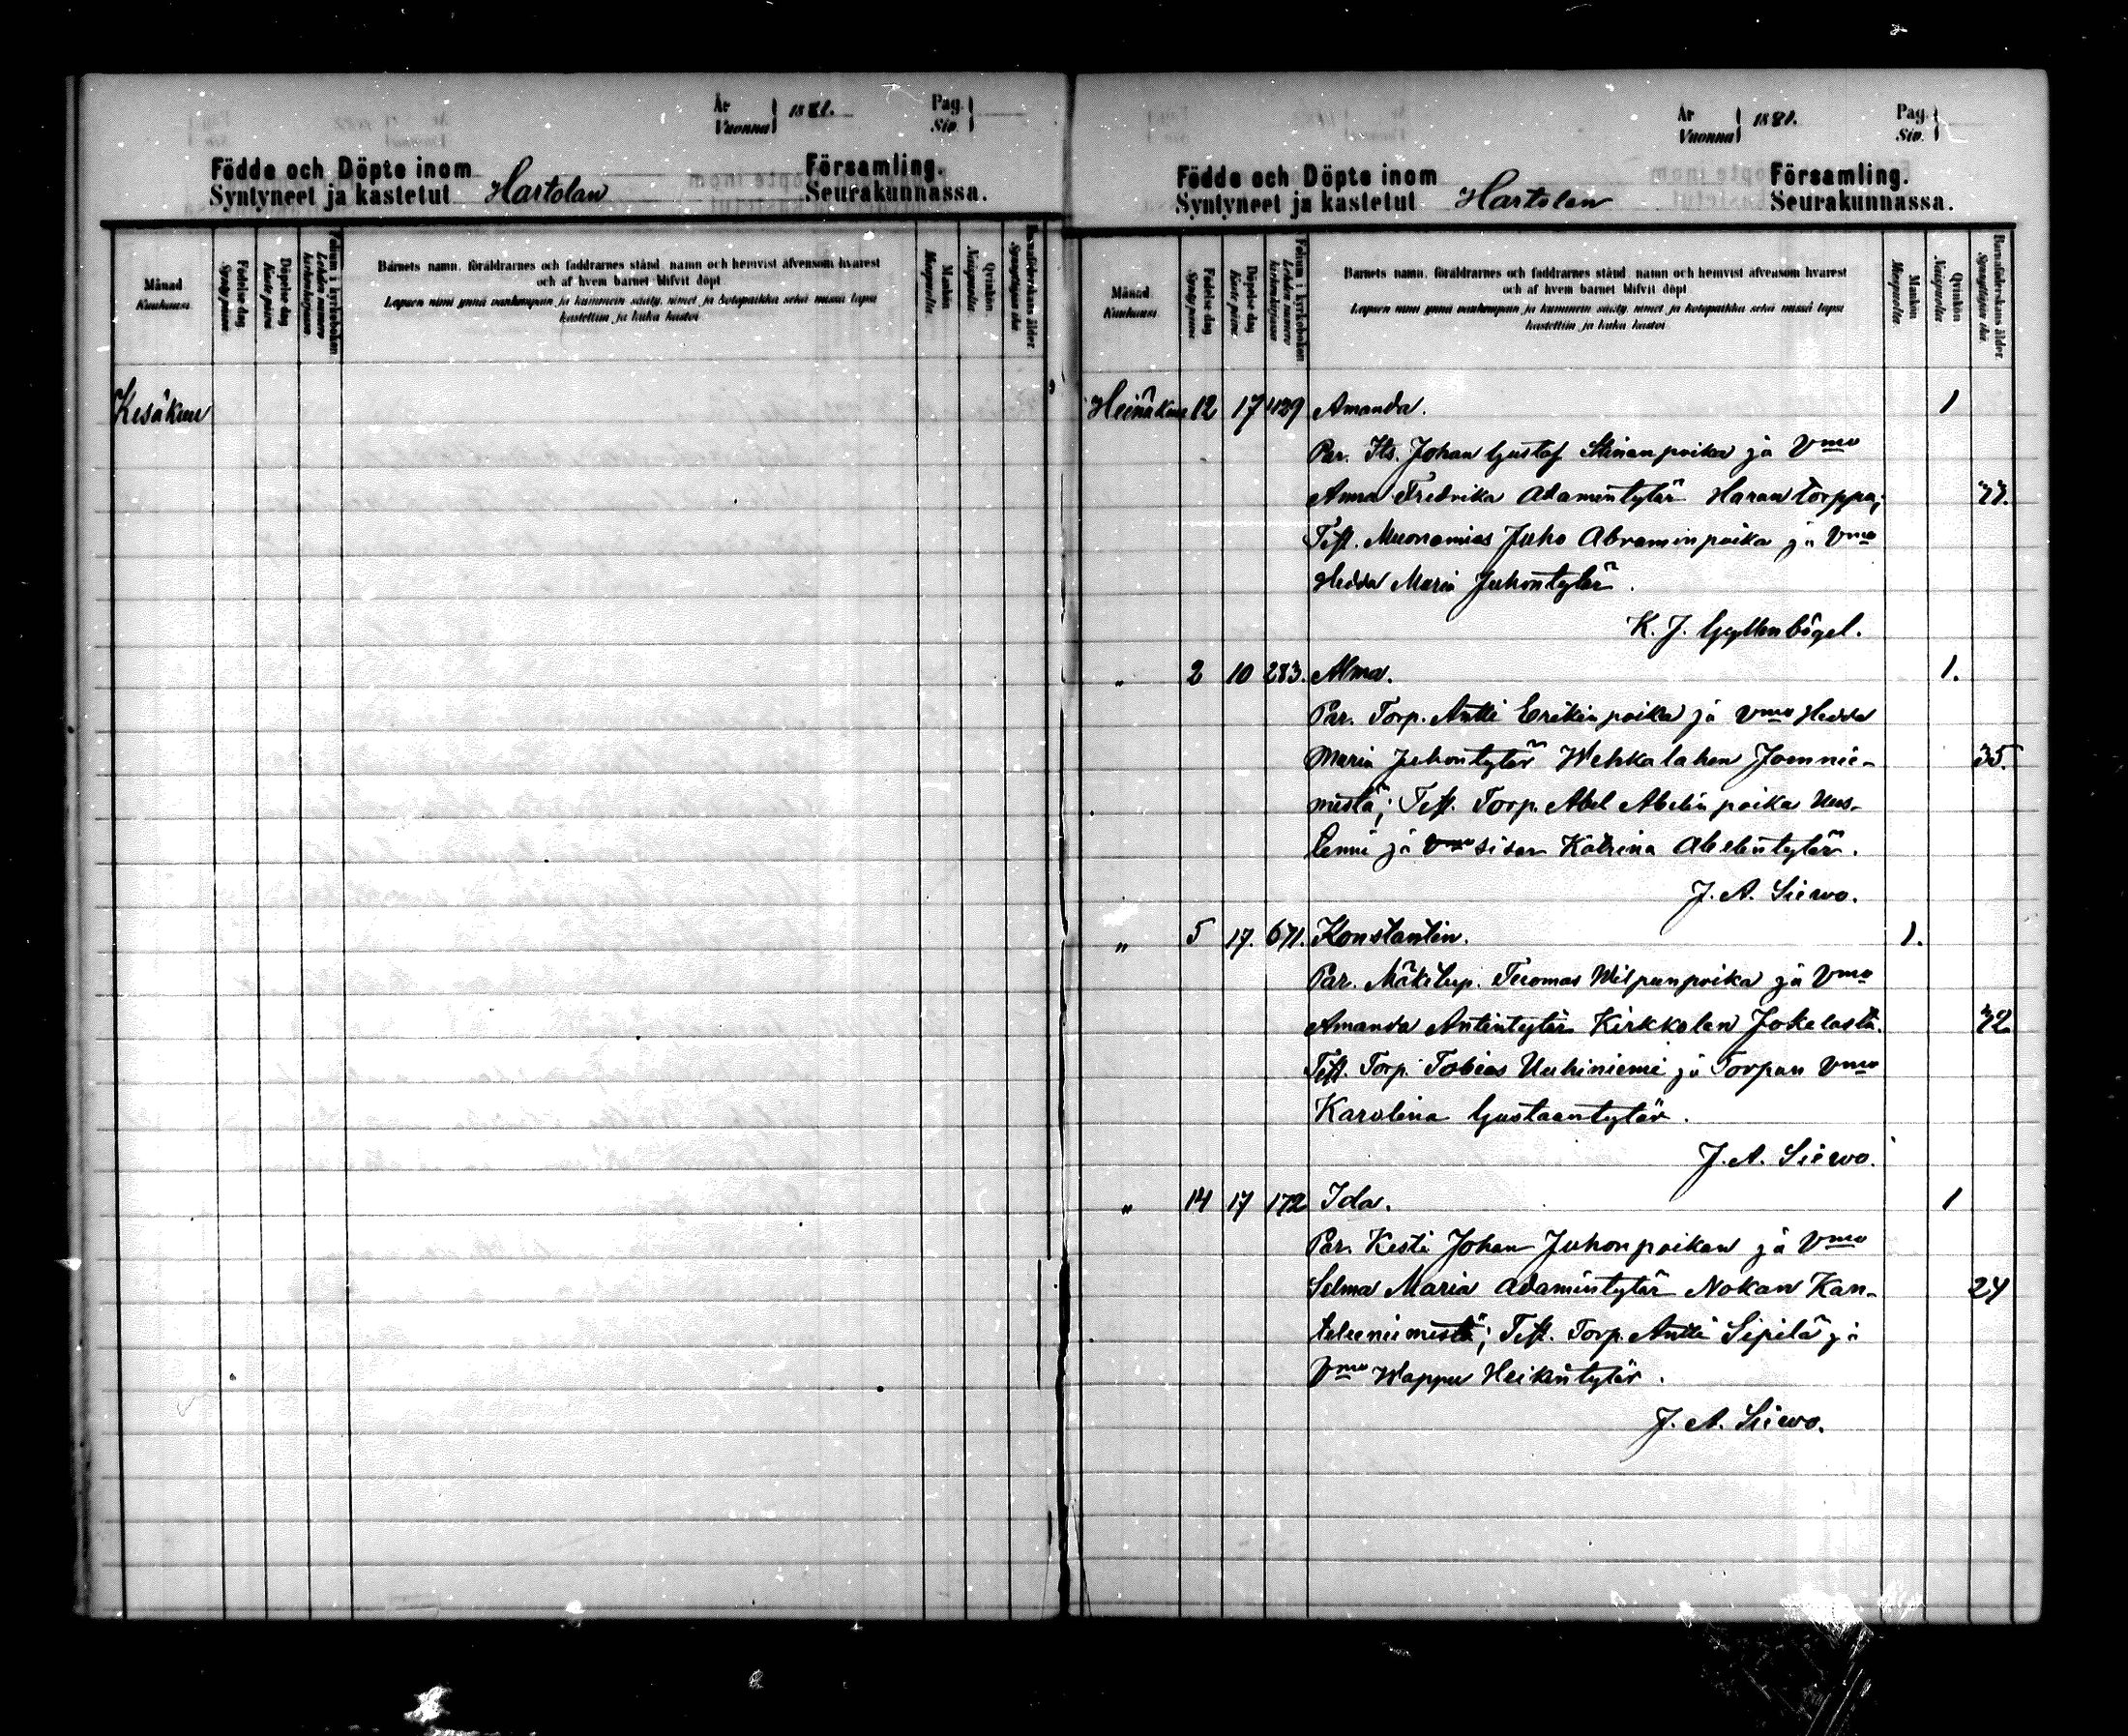 År
Vuonna 1881.
Pag.
Siv.
Födde och Döpte inom
Syntyneet ja kastetut Hartolan
Församling.
Seurakunnassa.
Månad
Kuukausi
Födelse dag
Synty päivä
Döpelse dag
Kaste päivä
Folium i kyrkoboken
Lehden numero kirkonkirjassa
Barnets namn, föräldrarnes och faddrarnes stånd, namn och hemvist äfvensom hvarest
och af hvem barnet blifvit döpt
Lapsen nimi ynnä vanhempain ja kummein sääty, nimet ja kotopaikka sekä missä lapsi
kastettiin ja kuka kastoi
Mankön
Miespuolia
Qvinkön
Naispuolia
Barnaföderskans ålder
Synnyttäjän ikä
Kesäkuu
År
Vuonna 1881.
Pag.
Siv.
Födde och Döpte inom
Syntyneet ja kastetut Hartolan
Församling.
Seurakunnassa.
Månad
Kuukausi
Födelse dag
Synty päivä
Döpelse dag
Kaste päivä
Folium i kyrkoboken
Lehden numero kirkonkirjassa
Barnets namn, föräldrarnes och faddrarnes stånd, namn och hemvist äfvensom hvarest
och af hvem barnet blifvit döpt
Lapsen nimi ynnä vanhempain ja kummein sääty, nimet ja kotopaikka sekä missä lapsi
kastettiin ja kuka kastoi
Mankön
Miespuolia
Qvinkön
Naispuolia
Barnaföderskans ålder
Synnyttäjän ikä
Heinäkuu 12 17 Amanda. 1
Par. Its. Johan Gustaf Stinanpoika ja Vmo
Anna Fredrika Adamintytär Haran torppa;
Test. Muonamies Juho Abraminpoika ja Vmo
Hedda Maria Juhontytär.
K. J. Gyllenbögel.
" 2 10 283. Alma. 1.
Par. Torp. Antti Erikinpoika ja Vmo Hedda
Maria Juhontytär Wehkalahen Joennie- 35.
mestä; Test. Torp. Abel Abelinpoika Uus-
ja sisar Katrina Abelintytär.
J. A. Siewo.
" 5 17. 671. Konstantin. 1.
Par. Mäkitup. Tuomas Wilpunpoika ja Vmo
Amanda Antintytär Kirkkolan Jokelasta. 32
Test. Torp. Tobias Uuhiniemi ja Torpan Vmo
Karolina Gustaantytär.
J. A. Siewo.
" 14 17 172 Ida. 1
Par. Kesti Johan Juhonpoikan ja Vmo
Selma Maria Adamintytär Nokan Kan- 24
teleeniemestä; Test. Torp. Antti Sipilä ja
Vmo Wappu Heikintytär.
J. A. Siewo.